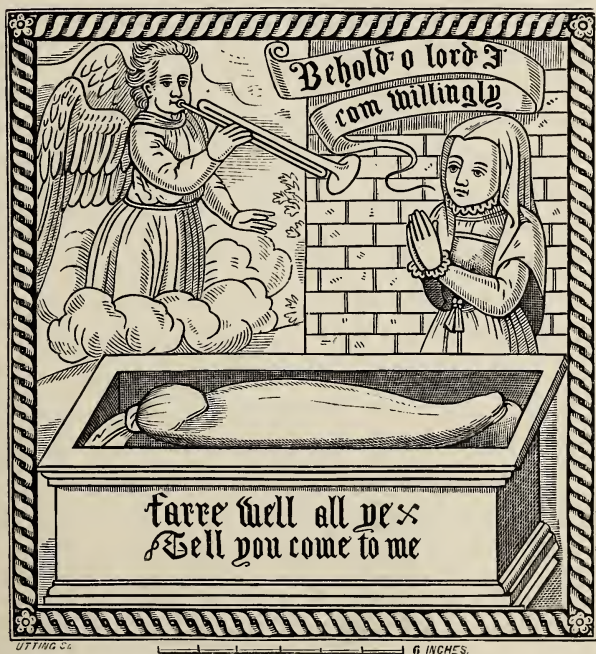 Behold o lord I
com willingly
farre well all ye
Tell you come to me
UTTING Sc
6 INCHES.